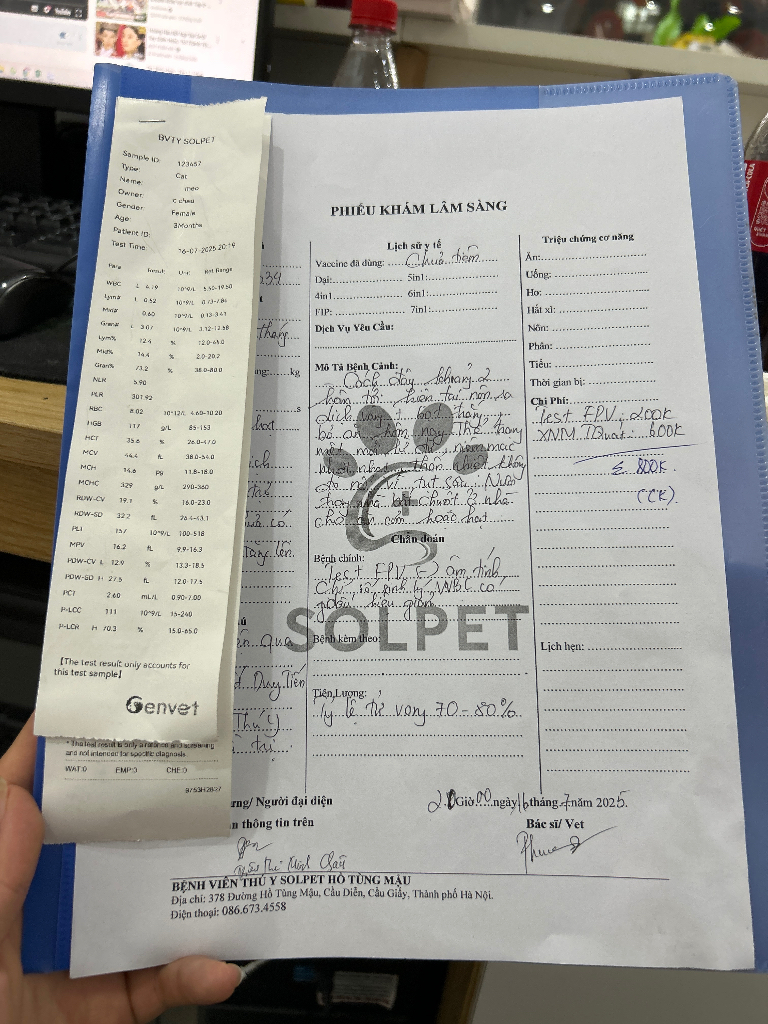 BVTY SOLPET
Sample ID: 123457
Type: Cat
Name: meo
Owner: c chau
Gender: Female
Age: 3Months
Patient ID:
Test Time: 16-07-2025 20:19
Para Result Unit Ref Range
WBC L 4.19 10^9/L 5.50-19.50
Lym# L 0.52 10^9/L 0.73-7.86
Mid# 0.60 10^9/L 0.13-3.41
Gran# L 3.07 10^9/L 3.12-12.58
Lym% 12.4 % 12.0-45.0
Mid% 14.4 % 2.0-20.2
Gran% 73.2 % 38.0-80.0
NLR 5.90
PLR 301.92
RBC 8.02 10^12/L 4.60-10.20
HGB 117 g/L 85-153
HCT 35.6 % 26.0-47.0
MCV 44.4 fL 38.0-54.0
MCH 14.6 pg 11.8-18.0
MCHC 329 g/L 290-360
RDW-CV 19.1 % 16.0-23.0
RDW-SD 32.2 fL 26.4-43.1
PLT 157 10^9/L 100-518
MPV 16.2 fL 9.9-16.3
PDW-CV L 12.9 % 13.3-18.5
PDW-SD H 27.5 fL 12.0-17.5
PCT 2.60 mL/L 0.90-7.00
P-LCC 111 10^9/L 15-240
P-LCR H 70.3 % 15.0-65.0
[The test result only accounts for
this test sample]
Genvet
* The test result is only a reference and screening
and not intended for specific diagnosis.
WAT:0 EMP:3 CHE:0
PHIẾU KHÁM LÂM SÀNG
Lịch sử y tế
Vaccine đã dùng: Chưa tiêm
Dại: 5in1:
4in1 6in1:
FIP: 7in1:
Dịch Vụ Yêu Cầu:
Mô Tả Bệnh Cảnh:
Cách đây khoảng 2
hôm tối, hiện tại nôn ra
dịch vàng + bọt trắng
bỏ ăn hôm nay. Thể trạng
mệt mỏi, lừ đừ, niêm mạc
nhợt nhạt, thân nhiệt không
đo nổi vì tụt sâu.
chuột ở nhà
ăn cơm hoặc hạt
Chẩn đoán
Bệnh chính:
Test FPV (-) âm tính,
Chỉ số sinh lý WBC có
dấu hiệu giảm
SOLPET
Bệnh kèm theo:
Tiên Lượng:
Tỷ lệ tử vong 70 - 80%
Triệu chứng cơ năng
Ăn:
Uống:
Ho:
Hắt xì:
Nôn:
Phân:
Tiểu:
Thời gian bị:
Chi Phí:
Test FPV: 200K
XNM TQuát: 600K
Σ 800K
(CK)
Lịch hẹn:
ưng/ Người đại diện
n thông tin trên
20 Giờ 00 ngày 16 tháng 7 năm 2025.
Bác sĩ/ Vet
BỆNH VIỆN THÚ Y SOLPET HỒ TÙNG MẬU
Địa chỉ: 378 Đường Hồ Tùng Mậu, Cầu Diễn, Cầu Giấy, Thành phố Hà Nội.
Điện thoại: 086.673.4558